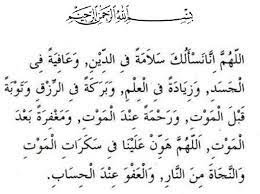 بِسْمِ اللهِ الرَّحْمٰنِ الرَّحِيْمِ
اَللّٰهُمَّ اِنَّانَسْأَلُكَ سَلَامَةً فِى الدِّيْنِ، وَعَافِيَةً فِى
الْجَسَدِ، وَزِيَادَةً فِى الْعِلْمِ، وَبَرَكَةً فِى الرِّزْقِ وَتَوْبَةً
قَبْلَ الْمَوْتِ، وَرَحْمَةً عِنْدَ الْمَوْتِ، وَمَغْفِرَةً بَعْدَ
الْمَوْتِ، اَللّٰهُمَّ هَوِّنْ عَلَيْنَا فِى سَكَرَاتِ الْمَوْتِ
وَالنَّجَاةَ مِنَ النَّارِ، وَالْعَفْوَ عِنْدَ الْحِسَابِ.